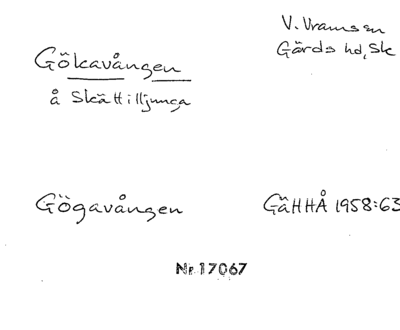 Gökavången
å Skättilljunga
V. Vramsen
Gärds hd, Sk
Gögavången
GäHHÅ 1958:63
Nr. 17067